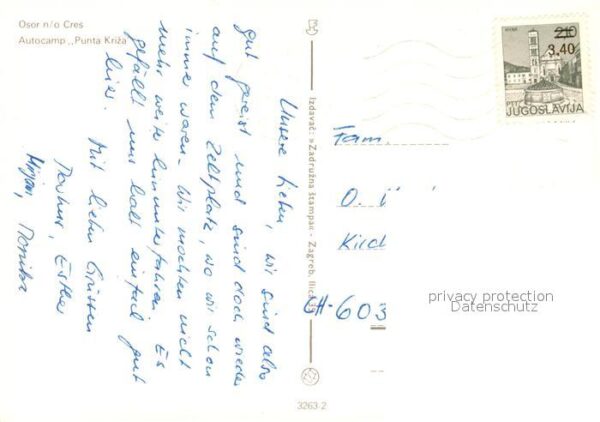 Osor n/o Cres
Autocamp „Punta Križa"
Unsere Lieben, wir sind also
gut gereist und sind doch wieder
auf dem Zeltplatz, wo wir schon
immer waren. Wir mochten nicht
mehr weite herumfahren. Es
gefällt uns halt einfach gut
hier. Mit lieben Grüssen
Esther
Mirjam, Monika
Izdavač: »Zadružna štampa« - Zagreb, Ilica
3263-2
2.10
3.40
PTT
JUGOSLAVIJA
Fam.
O.
CH-603
privacy protection
Datenschutz